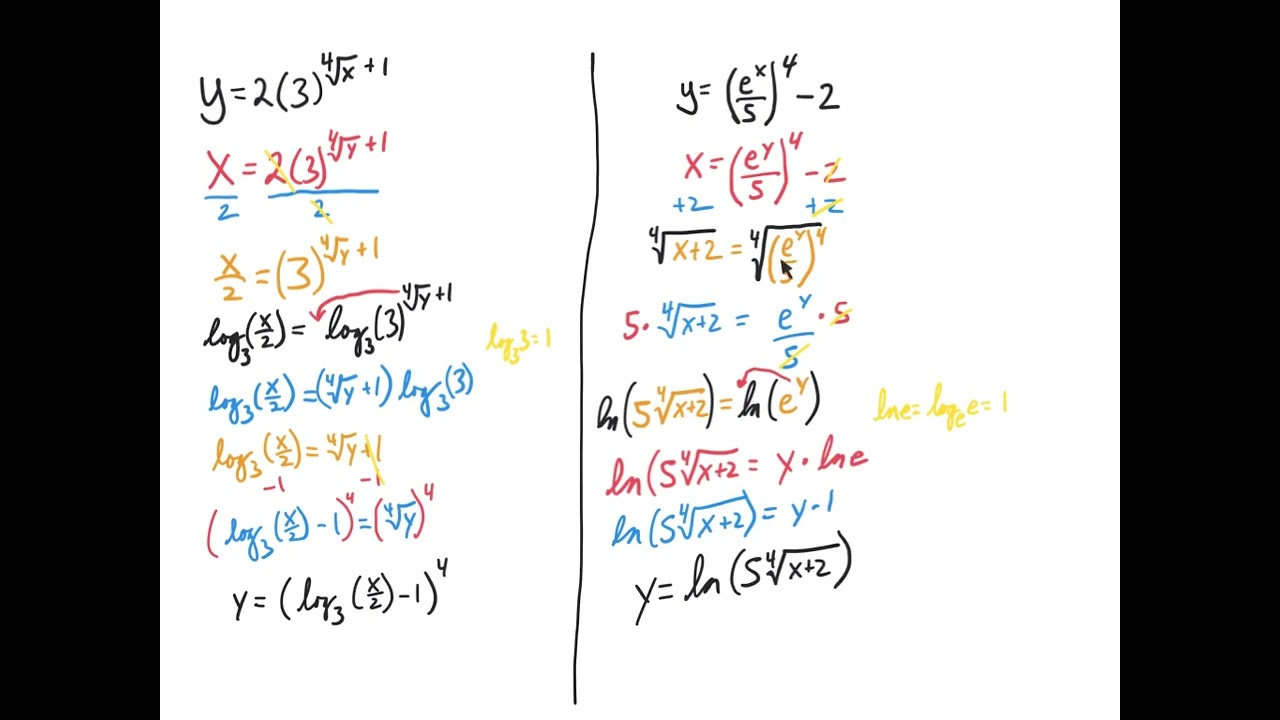 y = 2(3)^(∜x + 1)
x = 2(3)^(∜y + 1)
2 2
x/2 = (3)^(∜y + 1)
log₃(x/2) = log₃(3)^(∜y + 1)
log₃3 = 1
log₃(x/2) = (∜y + 1) log₃(3)
log₃(x/2) = ∜y + 1
-1 -1
(log₃(x/2) - 1)⁴ = (∜y)⁴
y = (log₃(x/2) - 1)⁴
y = (e^x/5)⁴ - 2
x = (e^y/5)⁴ - 2
+2 +2
∜(x+2) = ∜((e^y/5)⁴)
5 · ∜(x+2) = e^y/5 · 5
ln(5∜(x+2)) = ln(e^y)
ln e = logₑe = 1
ln(5∜(x+2) = y · ln e
ln(5∜(x+2)) = y · 1
y = ln(5∜(x+2))